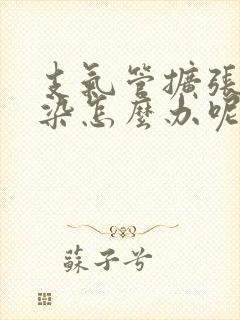 支氣管擴張
染怎麼办呢
蘇子兮